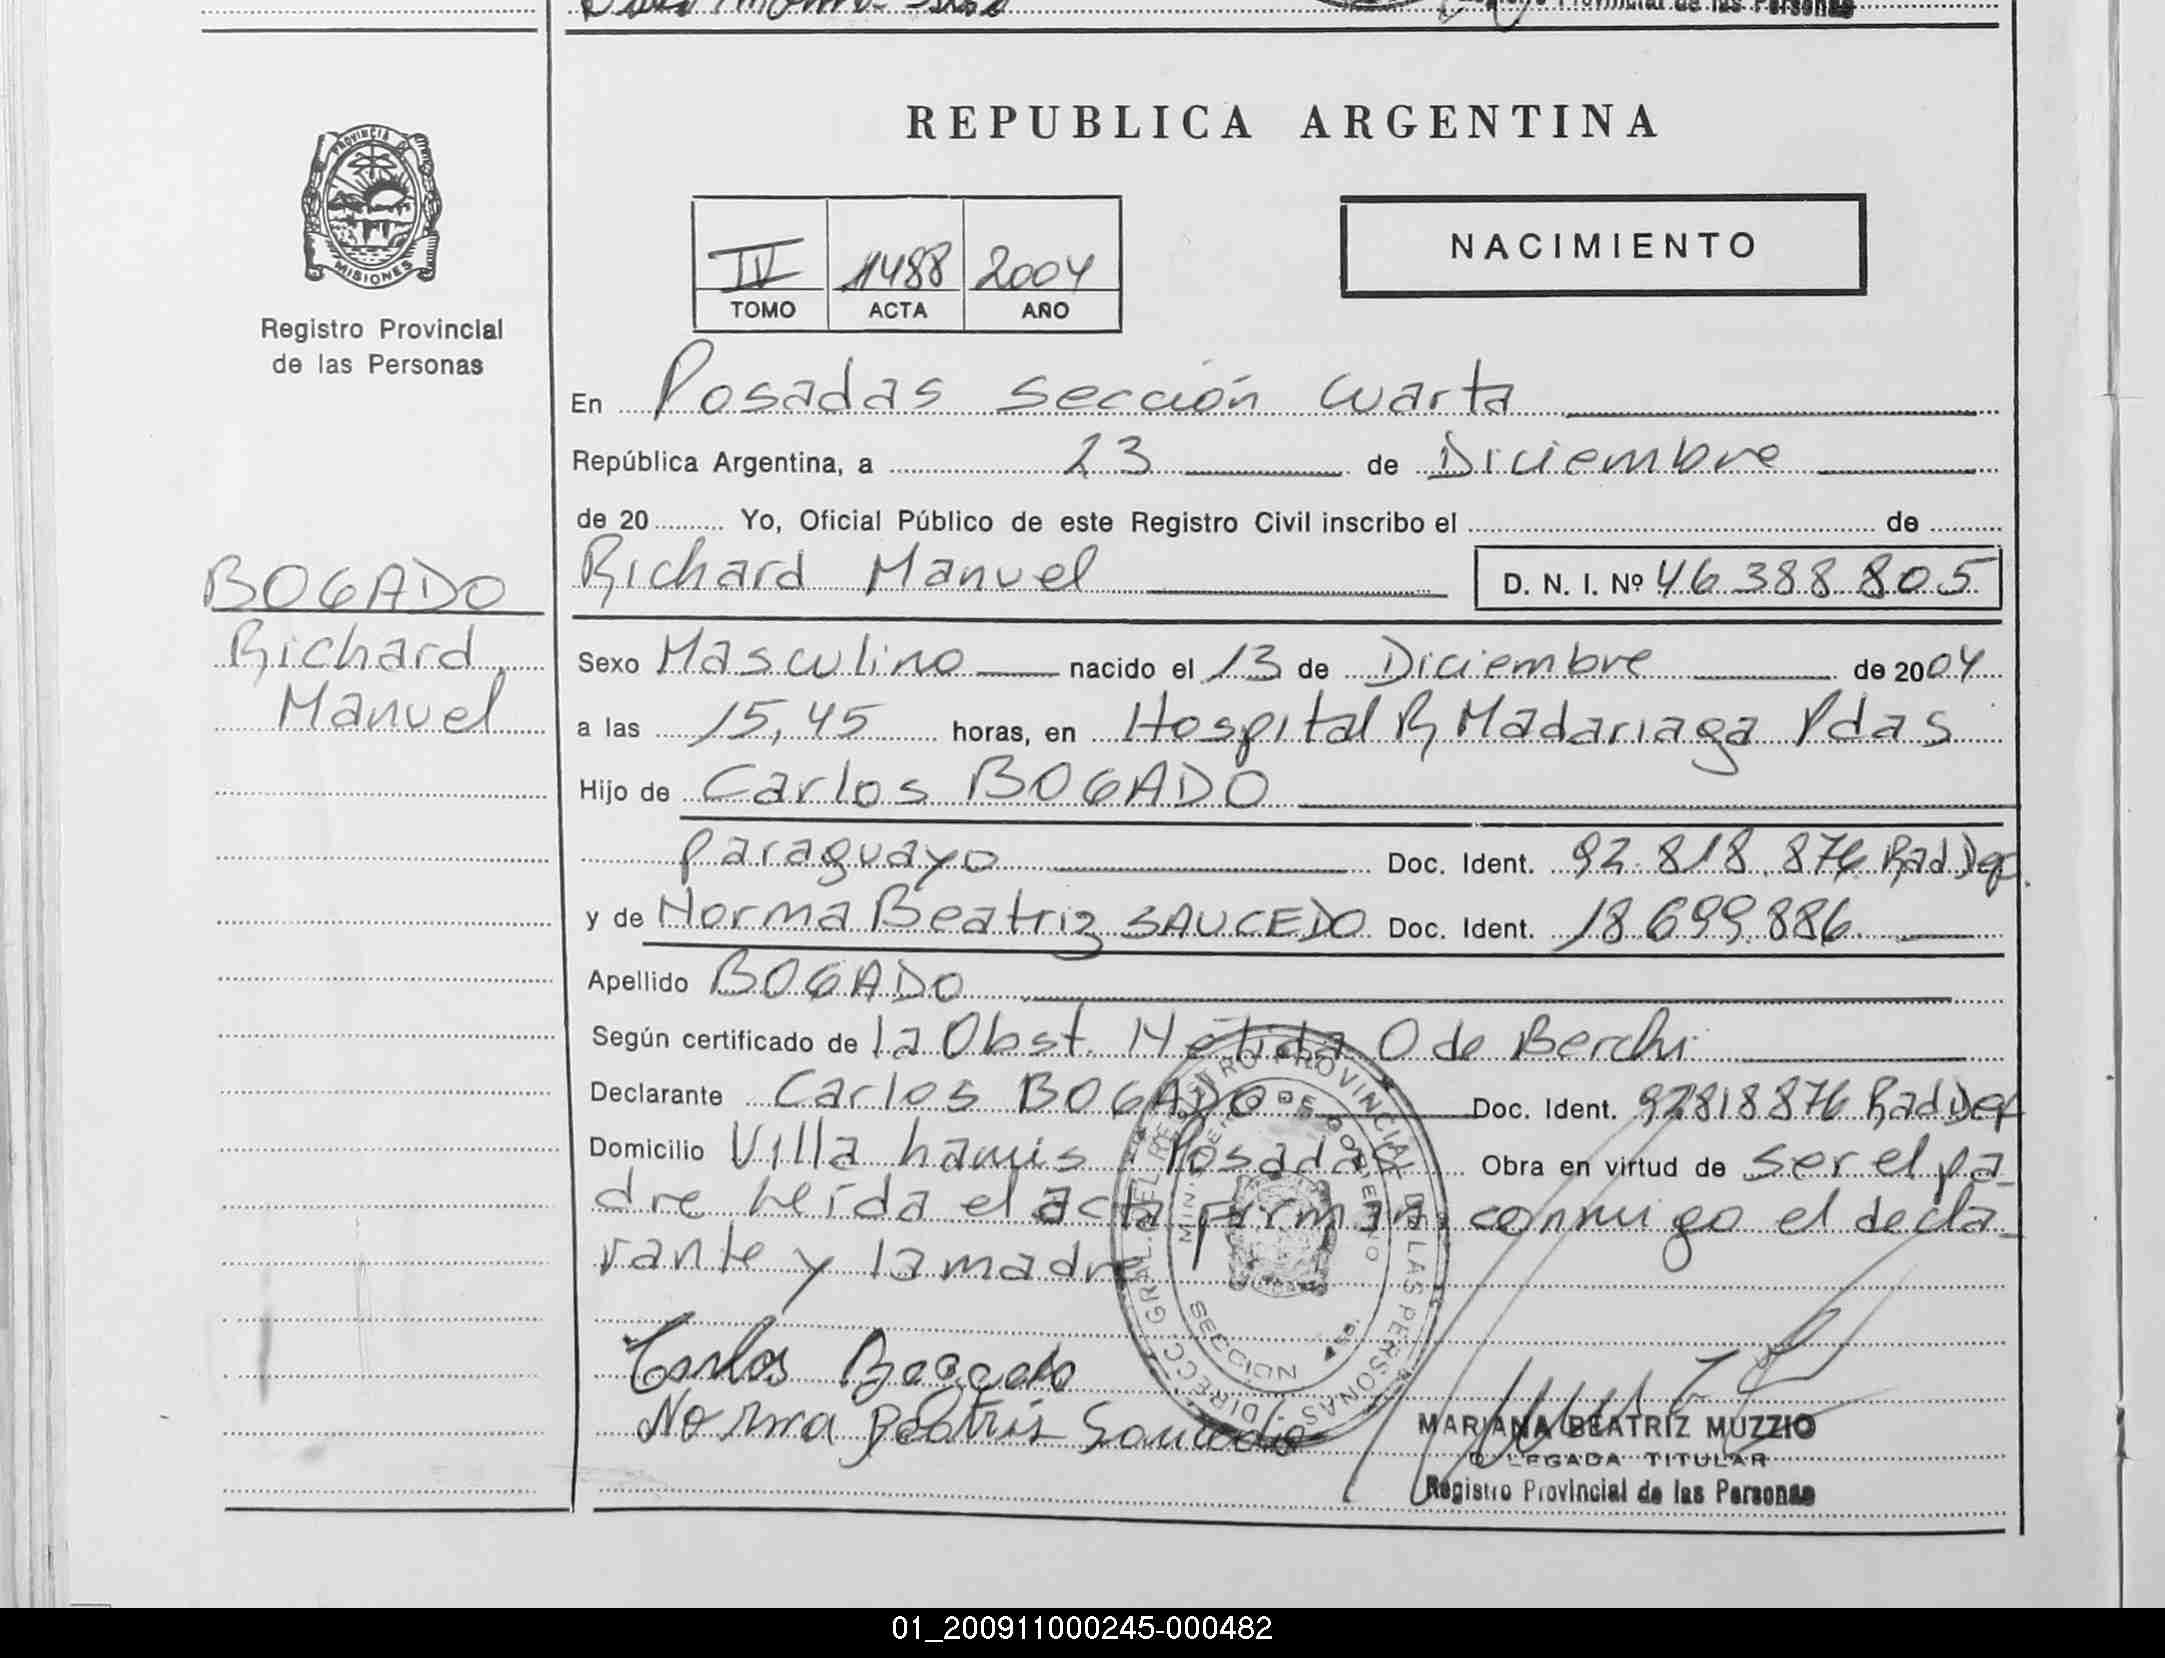 Provincial de las Personas
REPUBLICA ARGENTINA
PROVINCIA DE
MISIONES
Registro Provincial
de las Personas
IV 1488 2004
TOMO ACTA AÑO
NACIMIENTO
En Posadas sección cuarta
República Argentina, a 23 de Diciembre
de 20 Yo, Oficial Público de este Registro Civil inscribo el de
BOGADO
Richard
Manuel
Richard Manuel D. N. I. Nº 46.388.805
Sexo Masculino nacido el 13 de Diciembre de 2004
a las 15,45 horas, en Hospital R Madariaga Pdas
Hijo de Carlos BOGADO
paraguayo Doc. Ident. 92.818.876 Rad Def.
y de Norma Beatriz SAUCEDO Doc. Ident. 18.699.886
Apellido BOGADO
Según certificado de la Obst. Nélida O de Berchi
Declarante Carlos BOGADO Doc. Ident. 92818876 Rad Def
Domicilio Villa Lanús Posadas Obra en virtud de ser el pa_
dre Leída el acta firman conmigo el decla_
rante y la madre
DIRECC. GRAL. DEL REGISTRO PROVINCIAL DE LAS PERSONAS
MINISTERIO DE GOBIERNO
SECCION
Carlos Bogado
Norma Beatris Saucedo
MARIANA BEATRIZ MUZZIO
DELEGADA TITULAR
Registro Provincial de las Personas
01_200911000245-000482